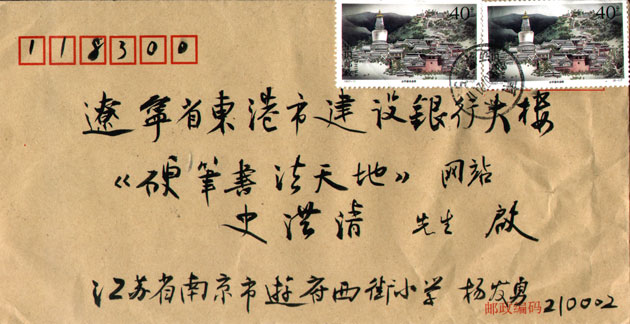 118300
40分
40分
遼寧省東港市建设銀行大樓
《硬筆書法天地》网站
史洪清 先生 啟
江苏省南京市游府西街小学 杨发勇
邮政编码 210002